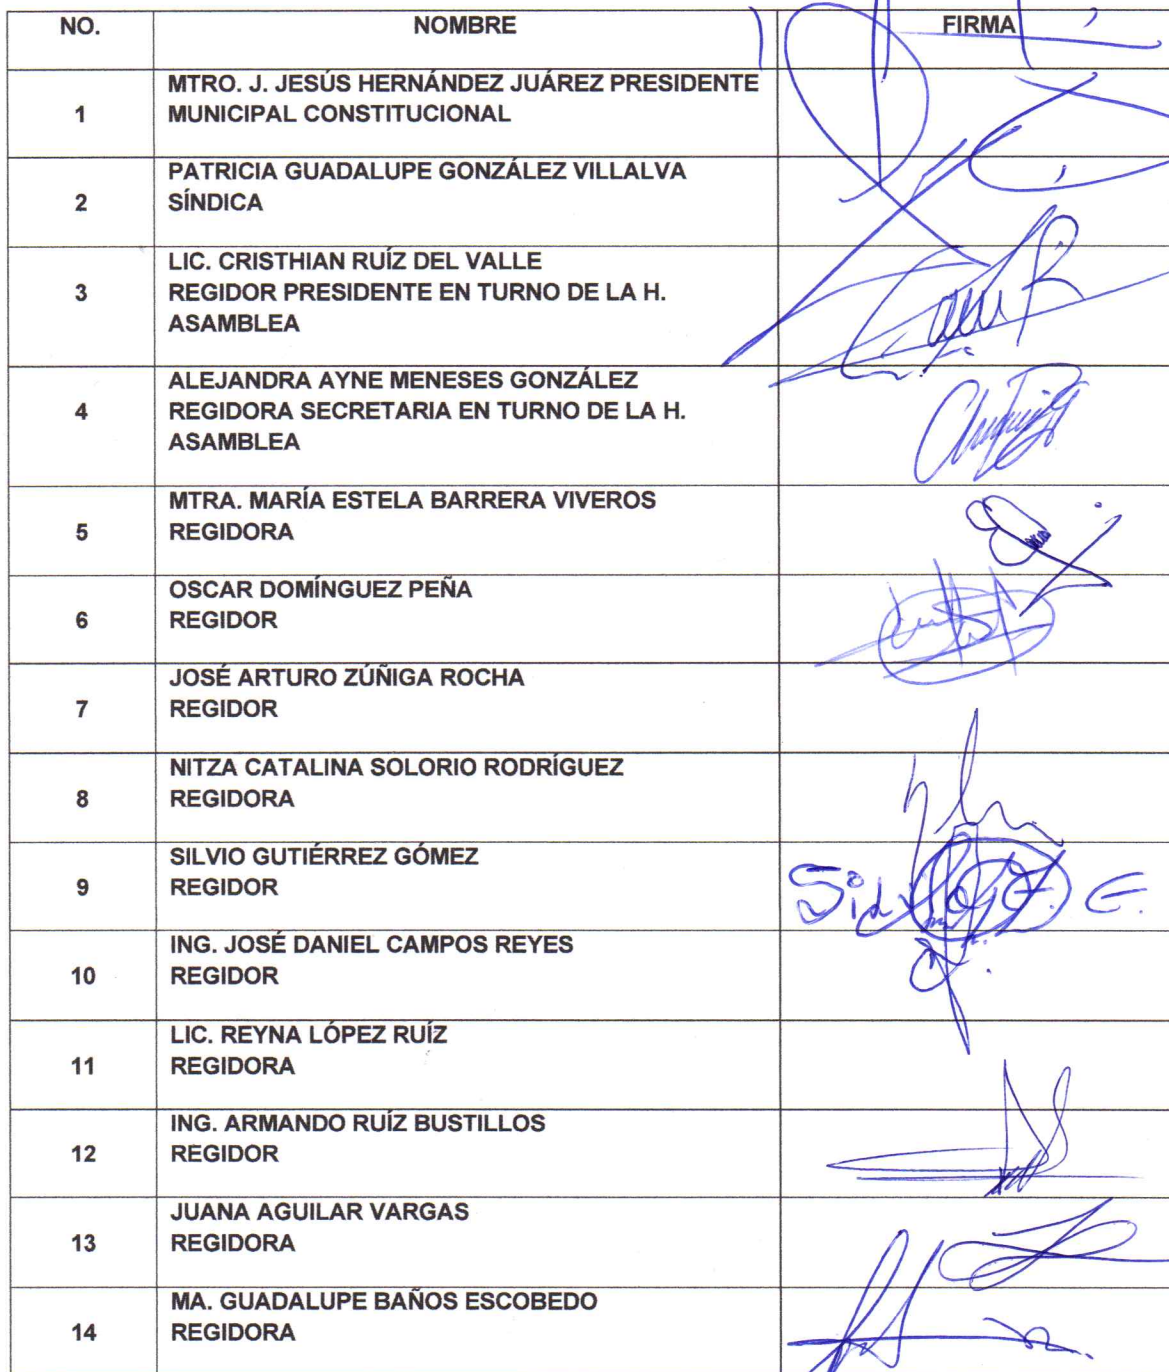 NO. NOMBRE FIRMA
1 MTRO. J. JESÚS HERNÁNDEZ JUÁREZ PRESIDENTE
MUNICIPAL CONSTITUCIONAL
2 PATRICIA GUADALUPE GONZÁLEZ VILLALVA
SÍNDICA
3 LIC. CRISTHIAN RUÍZ DEL VALLE
REGIDOR PRESIDENTE EN TURNO DE LA H.
ASAMBLEA
4 ALEJANDRA AYNE MENESES GONZÁLEZ
REGIDORA SECRETARIA EN TURNO DE LA H.
ASAMBLEA
5 MTRA. MARÍA ESTELA BARRERA VIVEROS
REGIDORA
6 OSCAR DOMÍNGUEZ PEÑA
REGIDOR
7 JOSÉ ARTURO ZÚÑIGA ROCHA
REGIDOR
8 NITZA CATALINA SOLORIO RODRÍGUEZ
REGIDORA
9 SILVIO GUTIÉRREZ GÓMEZ
REGIDOR
10 ING. JOSÉ DANIEL CAMPOS REYES
REGIDOR
11 LIC. REYNA LÓPEZ RUÍZ
REGIDORA
12 ING. ARMANDO RUÍZ BUSTILLOS
REGIDOR
13 JUANA AGUILAR VARGAS
REGIDORA
14 MA. GUADALUPE BAÑOS ESCOBEDO
REGIDORA